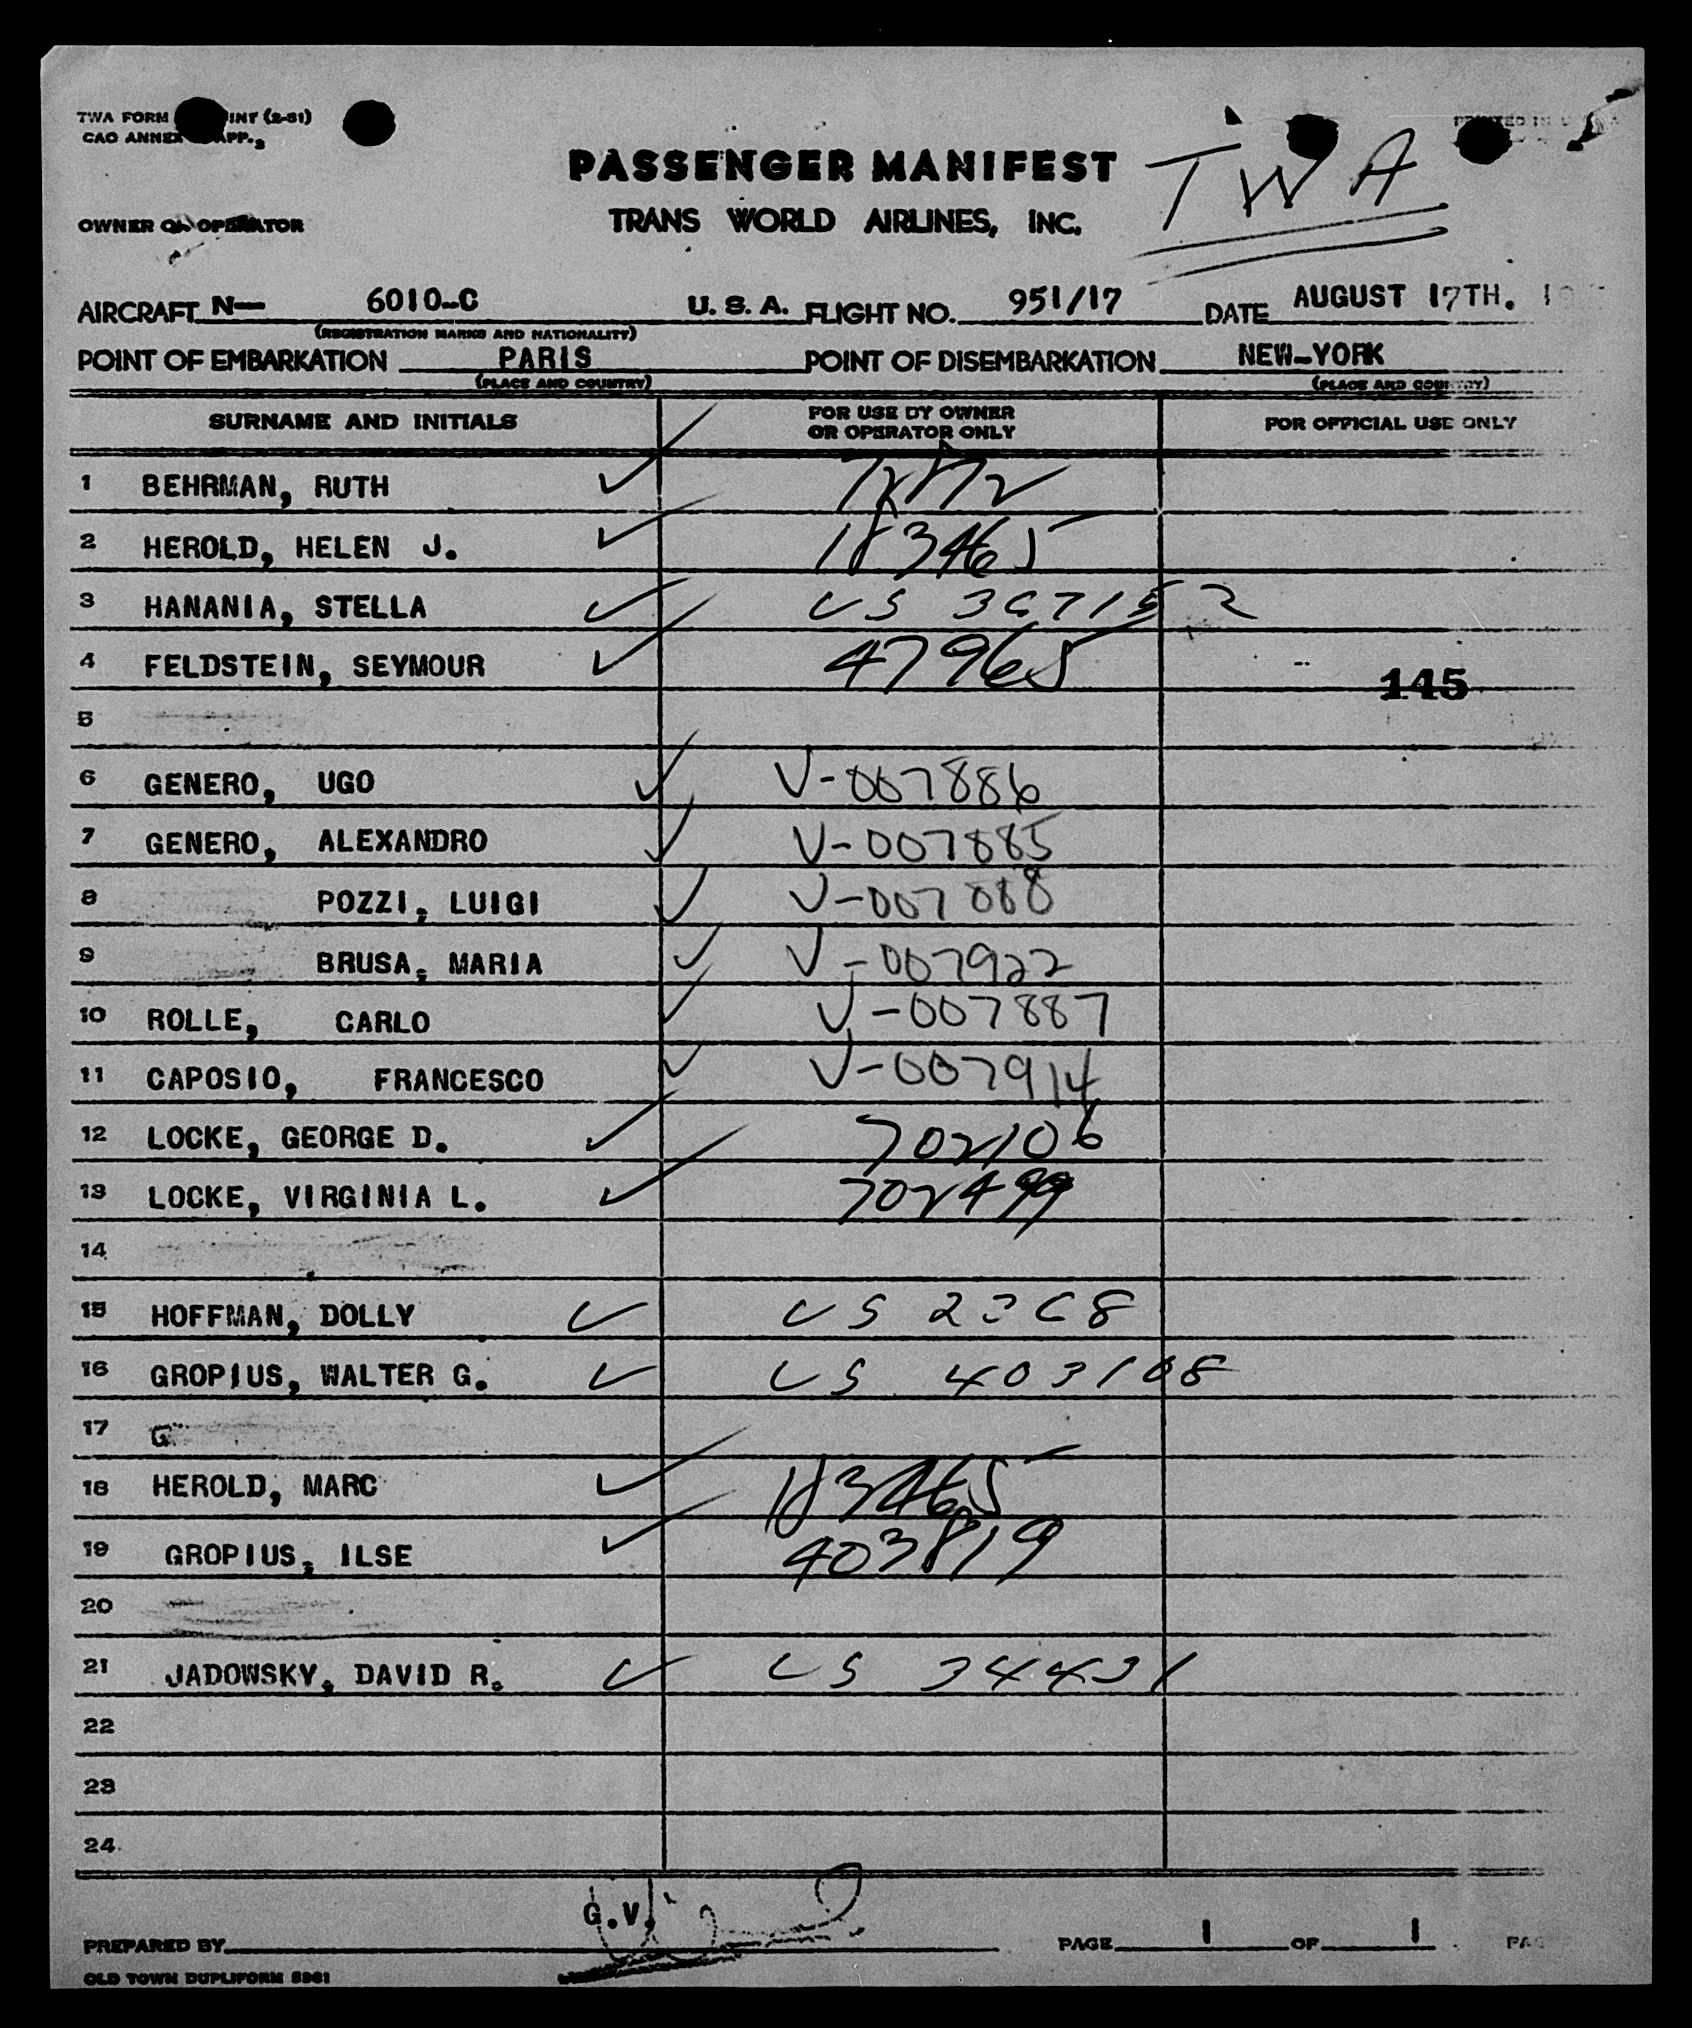 TWA FORM INT (2-51)
CAO ANNEX APP.
PRINTED IN U
PASSENGER MANIFEST
TWA
OWNER OR OPERATOR
TRANS WORLD AIRLINES, INC.
AIRCRAFT N— 6010-C U. S. A. FLIGHT NO. 951/17 DATE AUGUST 17TH.
(REGISTRATION MARKS AND NATIONALITY)
POINT OF EMBARKATION PARIS POINT OF DISEMBARKATION NEW-YORK
(PLACE AND COUNTRY) (PLACE AND COUNTRY)
SURNAME AND INITIALS FOR USE BY OWNER OR OPERATOR ONLY FOR OFFICIAL USE ONLY
1 BEHRMAN, RUTH
2 HEROLD, HELEN J. 183465
3 HANANIA, STELLA US 367152
4 FELDSTEIN, SEYMOUR 47965
145
5
6 GENERO, UGO V-007886
7 GENERO, ALEXANDRO V-007885
8 POZZI, LUIGI
9 BRUSA, MARIA V-007922
10 ROLLE, CARLO V-007887
11 CAPOSIO, FRANCESCO V-007914
12 LOCKE, GEORGE D. 702106
13 LOCKE, VIRGINIA L. 702499
14
15 HOFFMAN, DOLLY US 2368
16 GROPIUS, WALTER G. US 403108
17 G
18 HEROLD, MARC 183465
19 GROPIUS, ILSE 403819
20
21 JADOWSKY, DAVID R. US 34431
22
23
24
G.V.
PREPARED BY PAGE 1 OF 1
OLD TOWN DUPLIFORM